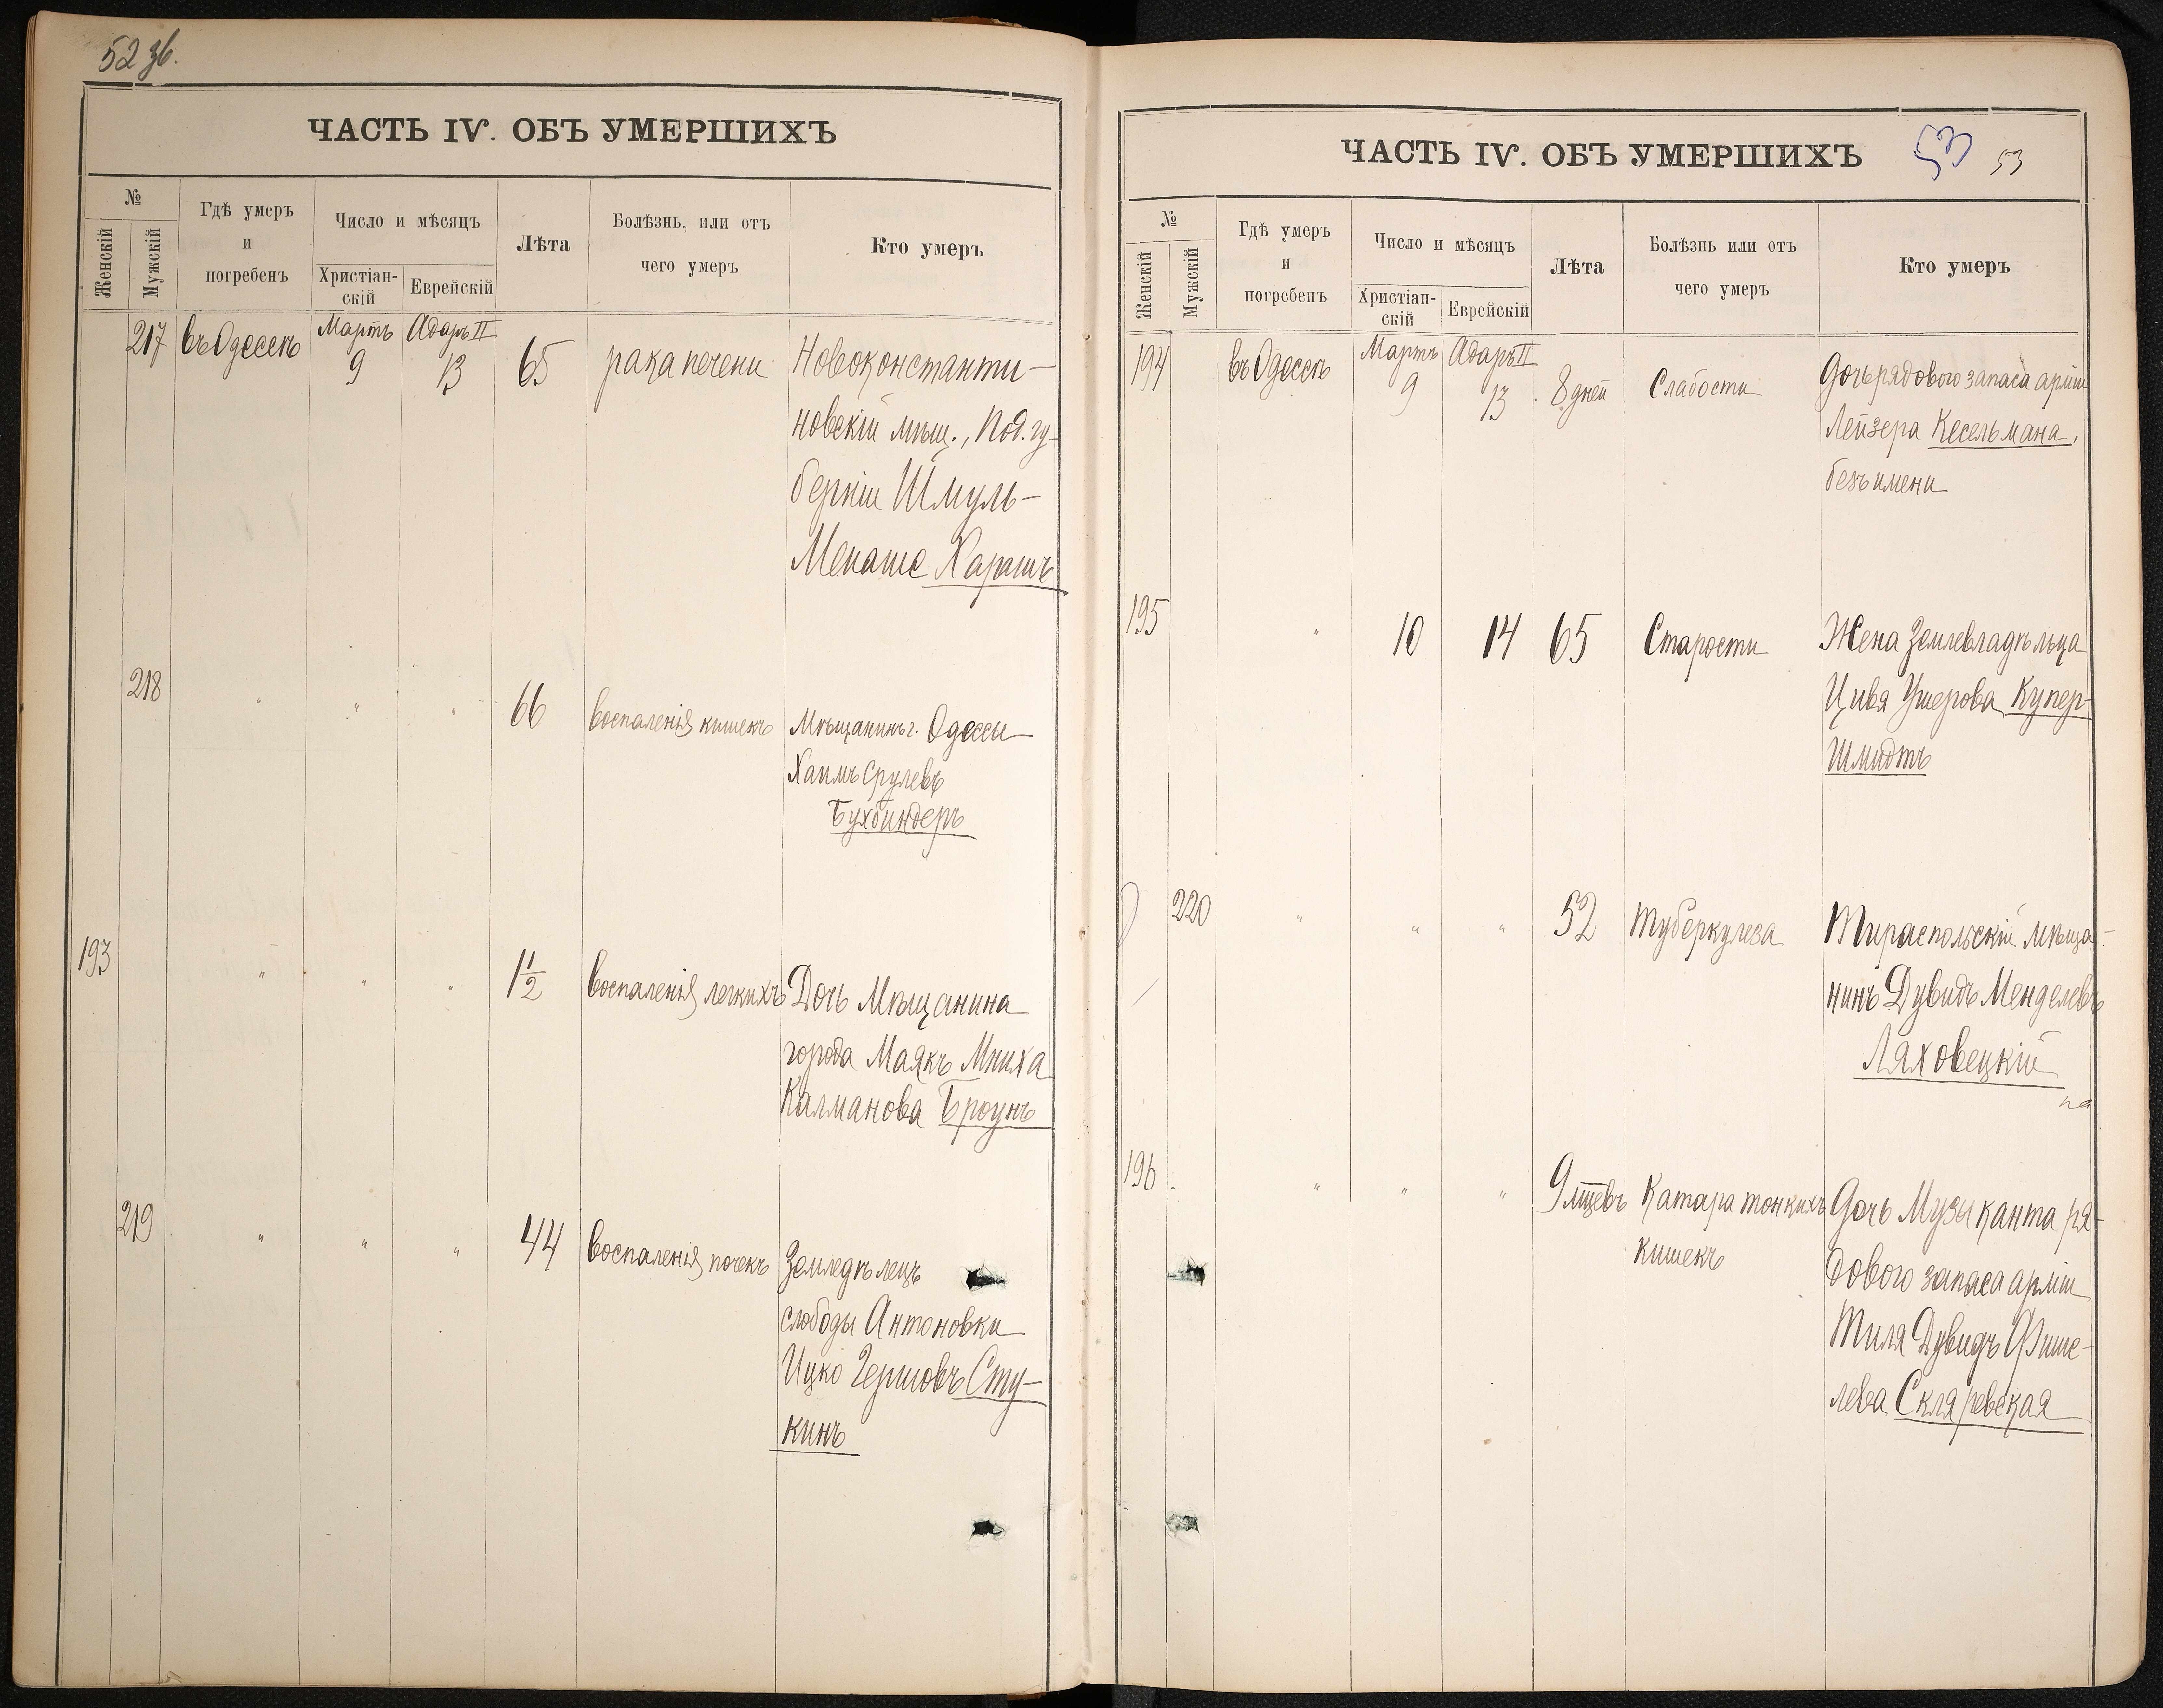 52 зв.
ЧАСТЬ IV. ОБЪ УМЕРШИХЪ
№
Женскій
Мужскій
Гдѣ умеръ
и
погребенъ
Число и мѣсяцъ
Христіан-
скій
Еврейскій
Лѣта
Болѣзнь, или отъ
чего умеръ
Кто умеръ
217 въ Одессѣ Мартъ 9 Адаръ II 13 65 рака печени Новоконстанти-
новскій мѣщ., Под. гу-
берніи Шмуль-
Менаше Харашъ
218 " " " 66 воспаленія кишекъ Мѣщанинъ г. Одессы
Хаимъ Срулевъ
Бухбиндеръ
193 " " " 1 1/2 воспаленія легкихъ Дочь Мѣщанина
города Маякъ Мниха
Калманова Броунъ
219 " " " 44 воспаленія почекъ Земледѣлецъ
слободы Антоновки
Ицко Гершовъ Сту-
кинъ
ЧАСТЬ IV. ОБЪ УМЕРШИХЪ 53 53
№
Женскій
Мужскій
Гдѣ умеръ
и
погребенъ
Число и мѣсяцъ
Христіан-
скій
Еврейскій
Лѣта
Болѣзнь или отъ
чего умеръ
Кто умеръ
194 въ Одессѣ Мартъ 9 Адаръ II 13 8 дней Слабости Дочь рядового запаса арміи
Лейзера Кесельмана,
безъ имени
195 " 10 14 65 Старости Жена Землевладѣльца
Цивя Ушерова Купер-
Шмидтъ
220 " " " 52 Туберкулеза Тираспольскій мѣща-
нинъ Дувидъ Менделевъ
Ляховецкій
на
196 " " " 9 мцевъ Катара тонкихъ Дочь Музыканта ря-
кишекъ дового запаса арміи
Тиля Дувидъ Фише-
лева Скляревская